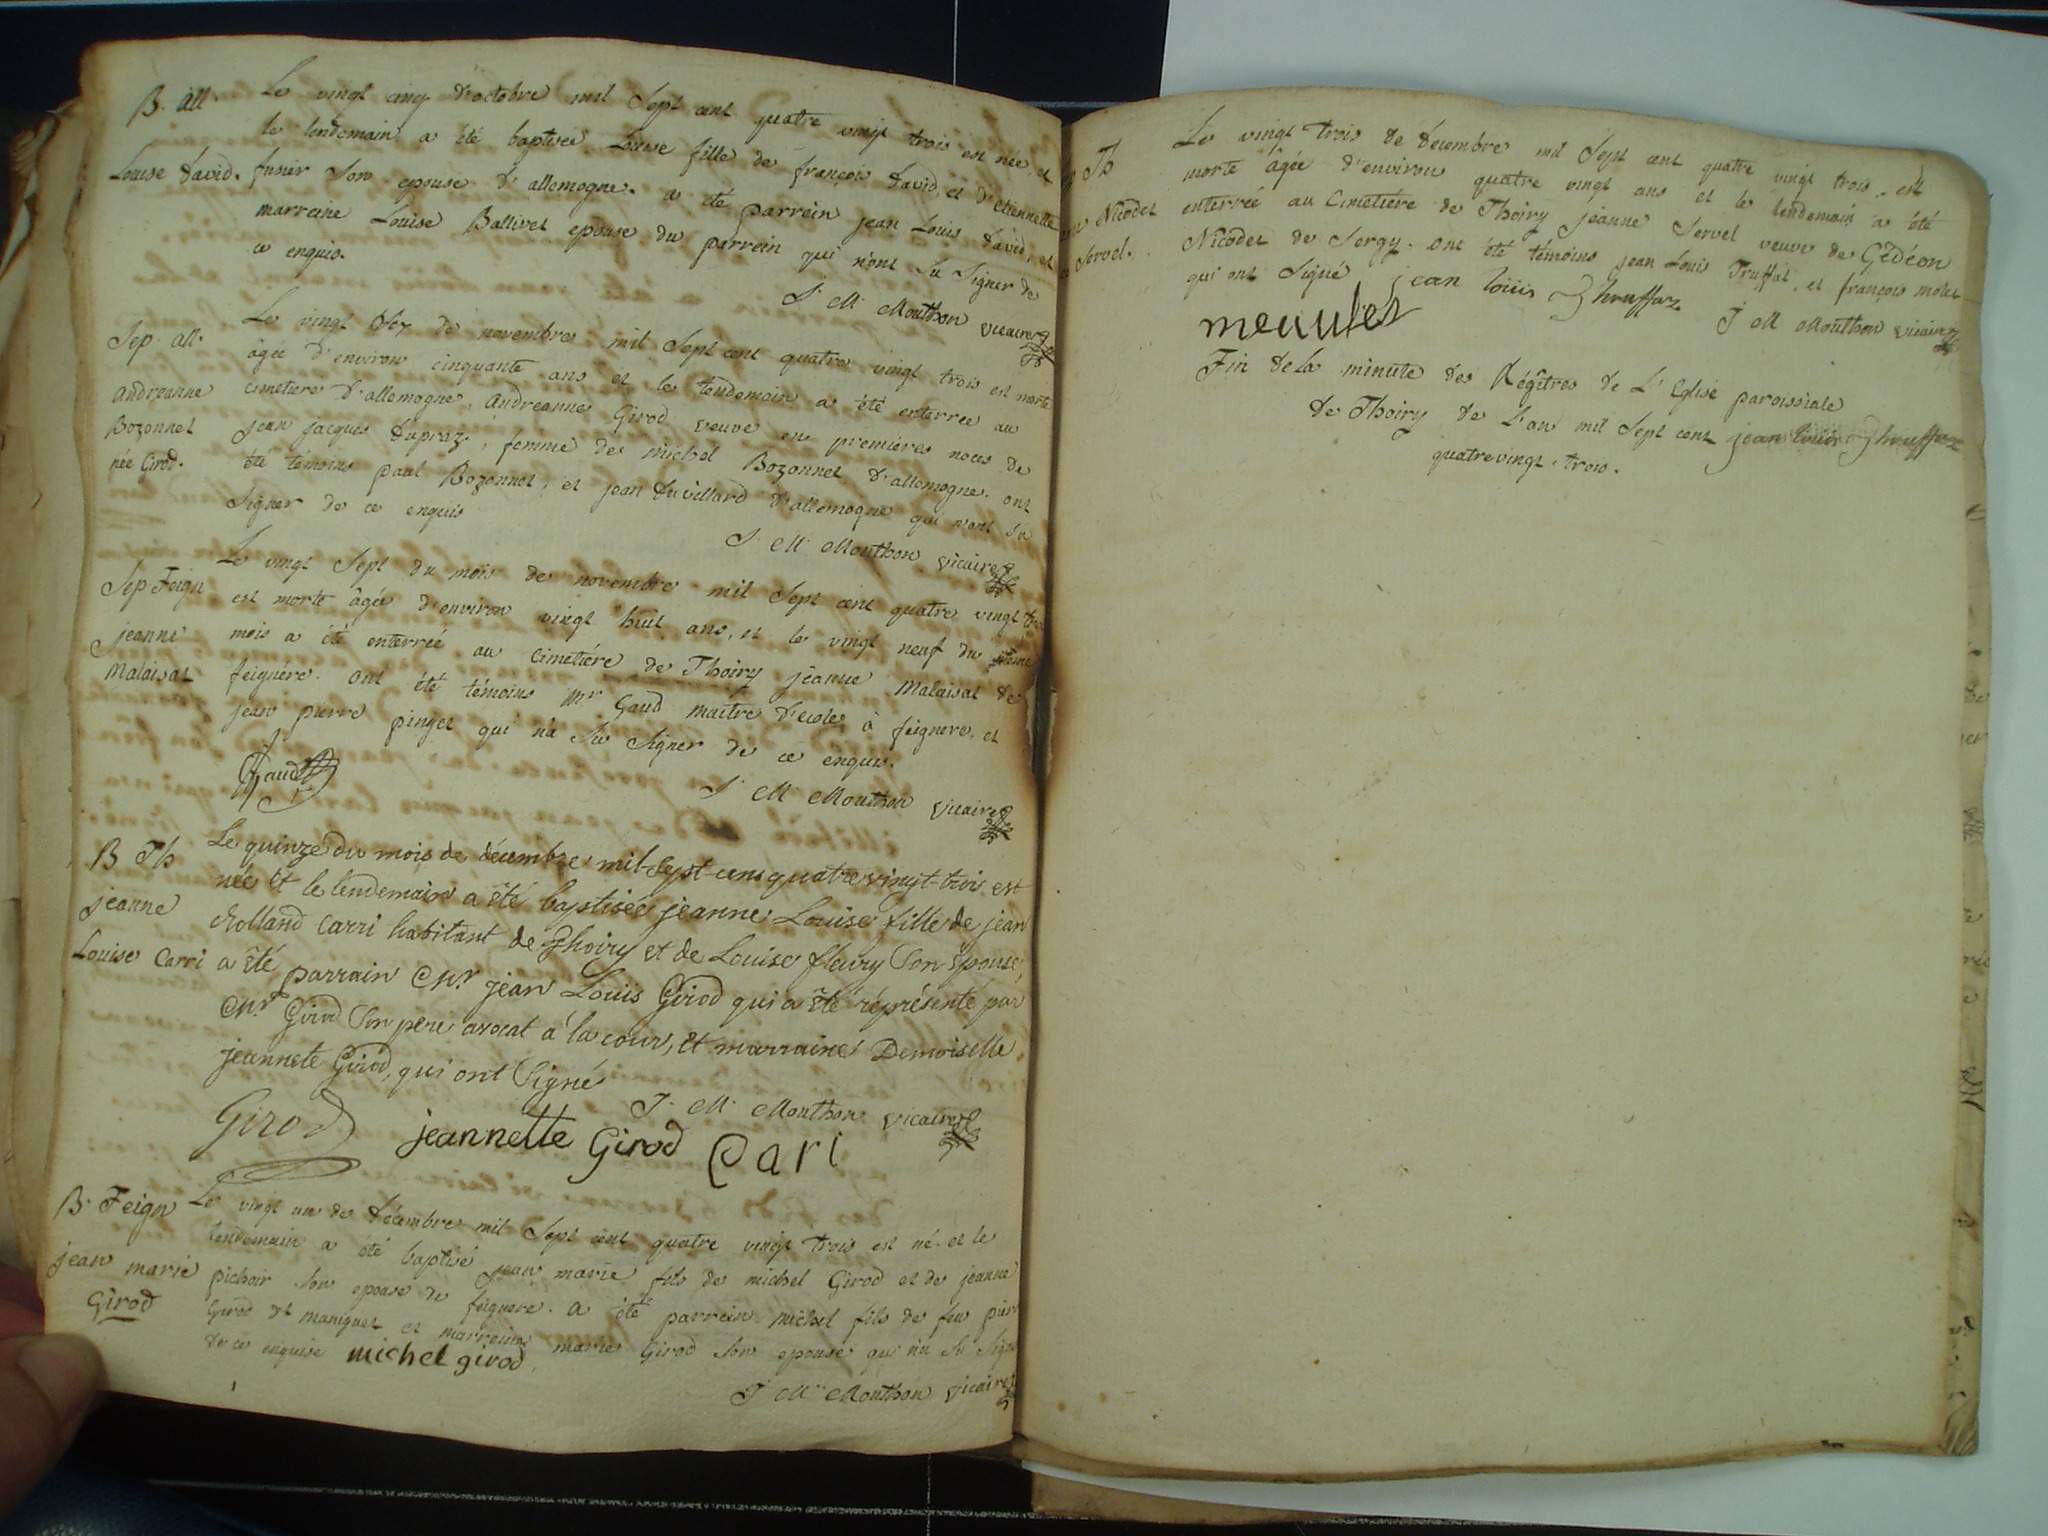 B. all.
Louise david.
Le vingt cinq d'octobre mil Sept cent quatre vingt trois est née, et
le lendemain a été baptisée Louise fille de françois david, et d'etiennette
fusier Son epouse d'allemogne. a été parrein jean Louis david, et
marreine Louise Ballivet epouse du parrein qui n'ont Su Signer de
ce enquis.
J. M. Mouthon vicaire
Sep. all.
andreanne
Bozonnet
née Girod.
Le vingt de novembre mil Sept cent quatre vingt trois est morte
âgée d'environ cinquante ans et le lendemain a été enterrée au
cimetiere d'allemogne, andreanne Girod veuve en premières noces de
jean jacques dupraz, femme de michel Bozonnet d'allemogne. ont
été témoins paul Bozonnet, et jean duvillard d'allemogne qui n'ont Su
Signer de ce enquis
J. M. Mouthon vicaire
Sep Feign
jeanne
Malaisat
Le vingt Sept du mois de novembre mil Sept cent quatre vingt
est morte âgée d'environ vingt huit ans, et le vingt neuf du même
mois a été enterrée au Cimetière de Thoiry jeanne Malaisat de
feignére. ont été témoins Mr Gaud maitre d'ecole à feignere, et
jean pierre pinget qui n'a Su Signer de ce enquis.
Gaud
J. M. Mouthon vicaire
B Th
jeanne
Louise Carri
Le quinze du mois de décembre mil-Sept-cens quatre vingt-trois est
née et le lendemain a été baptisée jeanne Louise fille de jean
Rolland Carri habitant de Thoiry et de Louise fleury Son épouse,
a été parrain Mr jean Louis Girod qui a été représenté par
Mr Girod Son pere avocat à la cour, et marraine Demoiselle
jeannete Girod, qui ont Signé
J. M. Mouthon vicaire
Girod jeannette Girod Cari
B. Feign
jean marie
Girod
Le vingt un de décembre mil Sept cent quatre vingt trois est né et le
lendemain a été baptisé jean marie fils de michel Girod et de jeanne
pichoir Son epouse de feignere. a été parrein michel fils de feu pierre
Girod maniguet et marreine marie Girod Son epouse qui n'a Su Signer
de ce enquise michel girod
J. M. Mouthon vicaire
Th
Nicodet
Servel.
Le vingt trois de decembre mil Sept cent quatre vingt trois est
morte âgée d'environ quatre vingt ans et le lendemain a été
enterrée au Cimetière de Thoiry jeanne Servel veuve de Gédéon
Nicodet de Sergy. ont été témoins jean Louis Truffat, et françois molet
qui ont Signé jean loüis Thruffaz
J M Mouthon vicaire
Fin de La minute des Régîtres de L'Eglise paroissiale
de Thoiry de L'an mil Sept cent jean loüis Thruffaz
quatrevingt-trois.